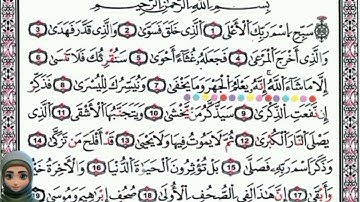 بِسْمِ اللَّهِ الرَّحْمَٰنِ الرَّحِيمِ
سَبِّحِ اسْمَ رَبِّكَ الْأَعْلَى 1 الَّذِي خَلَقَ فَسَوَّىٰ 2 وَالَّذِي قَدَّرَ فَهَدَىٰ 3
وَالَّذِي أَخْرَجَ الْمَرْعَىٰ 4 فَجَعَلَهُ غُثَاءً أَحْوَىٰ 5 سَنُقْرِئُكَ فَلَا تَنسَىٰ 6
إِلَّا مَا شَاءَ اللَّهُ إِنَّهُ يَعْلَمُ الْجَهْرَ وَمَا يَخْفَىٰ 7 وَنُيَسِّرُكَ لِلْيُسْرَىٰ 8 فَذَكِّرْ
إِن نَّفَعَتِ الذِّكْرَىٰ 9 سَيَذَّكَّرُ مَن يَخْشَىٰ 10 وَيَتَجَنَّبُهَا الْأَشْقَى 11 الَّذِي
يَصْلَى النَّارَ الْكُبْرَىٰ 12 ثُمَّ لَا يَمُوتُ فِيهَا وَلَا يَحْيَىٰ 13 قَدْ أَفْلَحَ مَن تَزَكَّىٰ 14
وَذَكَرَ اسْمَ رَبِّهِ فَصَلَّىٰ 15 بَلْ تُؤْثِرُونَ الْحَيَاةَ الدُّنْيَا 16 وَالْآخِرَةُ خَيْرٌ
وَأَبْقَىٰ 17 إِنَّ هَٰذَا لَفِي الصُّحُفِ الْأُولَىٰ 18 صُحُفِ إِبْرَاهِيمَ وَمُوسَىٰ 19